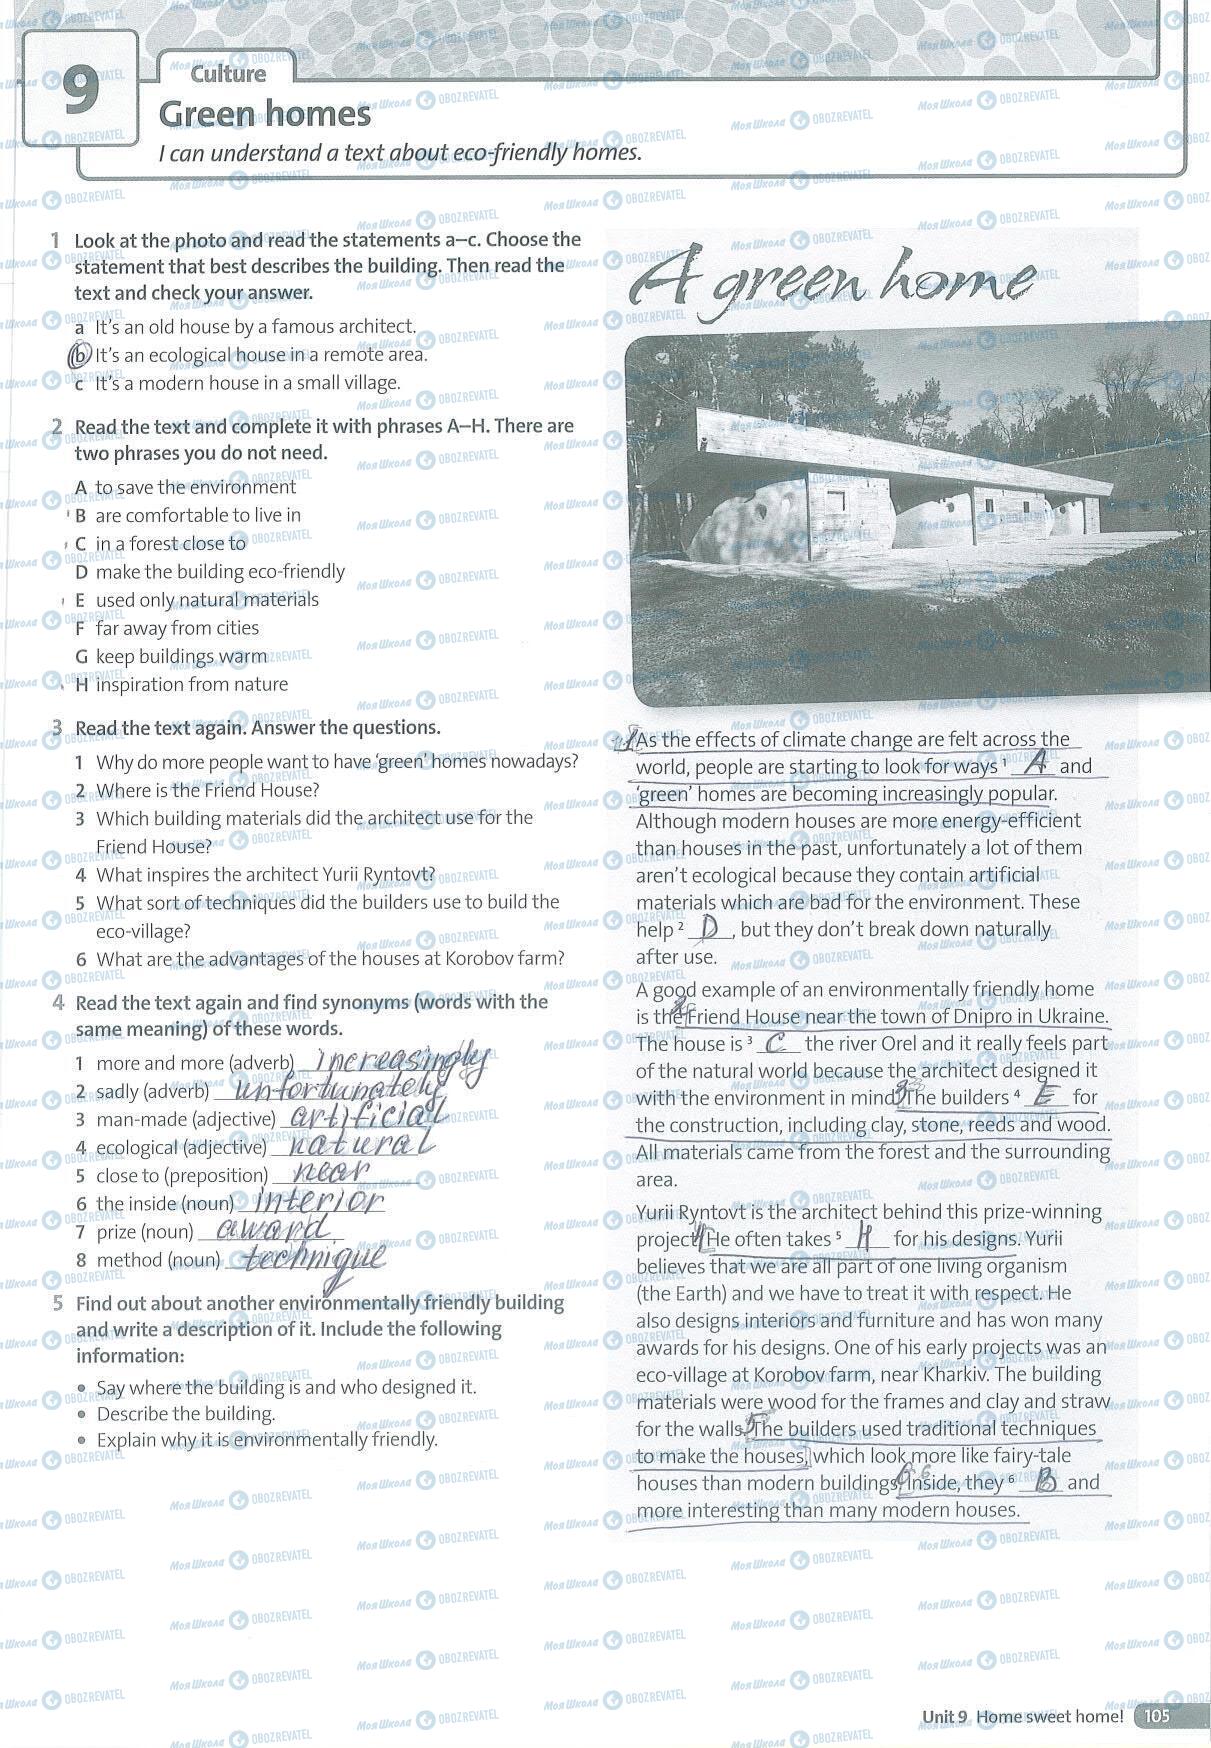 9
Culture
Green homes
I can understand a text about eco-friendly homes.
1 Look at the photo and read the statements a–c. Choose the
statement that best describes the building. Then read the
text and check your answer.
a It's an old house by a famous architect.
b It's an ecological house in a remote area.
c It's a modern house in a small village.
2 Read the text and complete it with phrases A–H. There are
two phrases you do not need.
A to save the environment
B are comfortable to live in
C in a forest close to
D make the building eco-friendly
E used only natural materials
F far away from cities
G keep buildings warm
H inspiration from nature
3 Read the text again. Answer the questions.
1 Why do more people want to have 'green' homes nowadays?
2 Where is the Friend House?
3 Which building materials did the architect use for the
Friend House?
4 What inspires the architect Yurii Ryntovt?
5 What sort of techniques did the builders use to build the
eco-village?
6 What are the advantages of the houses at Korobov farm?
4 Read the text again and find synonyms (words with the
same meaning) of these words.
1 more and more (adverb) increasingly
2 sadly (adverb) unfortunately
3 man-made (adjective) artificial
4 ecological (adjective) natural
5 close to (preposition) near
6 the inside (noun) interior
7 prize (noun) award
8 method (noun) technique
5 Find out about another environmentally friendly building
and write a description of it. Include the following
information:
• Say where the building is and who designed it.
• Describe the building.
• Explain why it is environmentally friendly.
A green home
1 As the effects of climate change are felt across the
world, people are starting to look for ways 1 A and
'green' homes are becoming increasingly popular.
Although modern houses are more energy-efficient
than houses in the past, unfortunately a lot of them
aren't ecological because they contain artificial
materials which are bad for the environment. These
help 2 D, but they don't break down naturally
after use.
A good example of an environmentally friendly home
is the 2 Friend House near the town of Dnipro in Ukraine.
The house is 3 C the river Orel and it really feels part
of the natural world because the architect designed it
with the environment in mind. 3 The builders 4 E for
the construction, including clay, stone, reeds and wood.
All materials came from the forest and the surrounding
area.
Yurii Ryntovt is the architect behind this prize-winning
project. 4 He often takes 5 H for his designs. Yurii
believes that we are all part of one living organism
(the Earth) and we have to treat it with respect. He
also designs interiors and furniture and has won many
awards for his designs. One of his early projects was an
eco-village at Korobov farm, near Kharkiv. The building
materials were wood for the frames and clay and straw
for the walls. 5 The builders used traditional techniques
to make the houses, which look more like fairy-tale
houses than modern buildings. 6 Inside, they 6 B and
more interesting than many modern houses.
Unit 9 Home sweet home! 105
МояШкола OBOZREVATEL